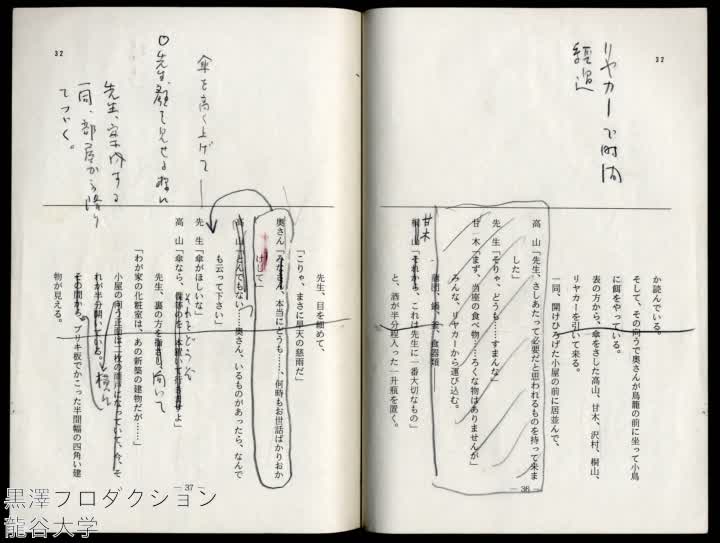 32
リヤカーで時間
経過
か読んでいる。
そして、その向うで奥さんが鳥籠の前に坐って小鳥
に餌をやっている。
表の方から、傘をさした高山、甘木、沢村、桐山、
リヤカーを引いて来る。
一同、開けひろげた小屋の前に居並んで、
高　山「先生、さしあたって必要だと思われるものを持って来ま
した」
先　生「そりゃ、どうも……すまんな」
甘　木「まず、当座の食べ物……ろくな物はありませんが」
みんな、リヤカーから運び込む。
蒲団、鍋、釜、食器類——
甘木
桐　山「それから、これは先生に一番大切なもの」
と、酒が半分程入った一升瓶を置く。
— 36 —
32
傘を高く上げて——
先生、案内する
一同、部屋から降り
てつづく。
先生、目を細めて、
「こりゃ、まさに旱天の慈雨だ」
奥さん「みなさん、本当にどうも……何時もお世話ばかりおか
けして」
高　山「とんでもない……奥さん、いるものがあったら、なんで
も云って下さい」
先　生「傘がほしいな」
高　山「傘なら、保篠のを一本置いて行きますよ」
先生、裏の方を指さし、
向いて
「わが家の化粧室は、あの新築の建物だが……」
小屋の向う正面は一枚の雨戸になっていて、今、そ
れが半分開いている。
その間から、ブリキ板でかこった半間幅の四角い建
物が見える。
— 37 —
黒澤プロダクション
龍谷大学